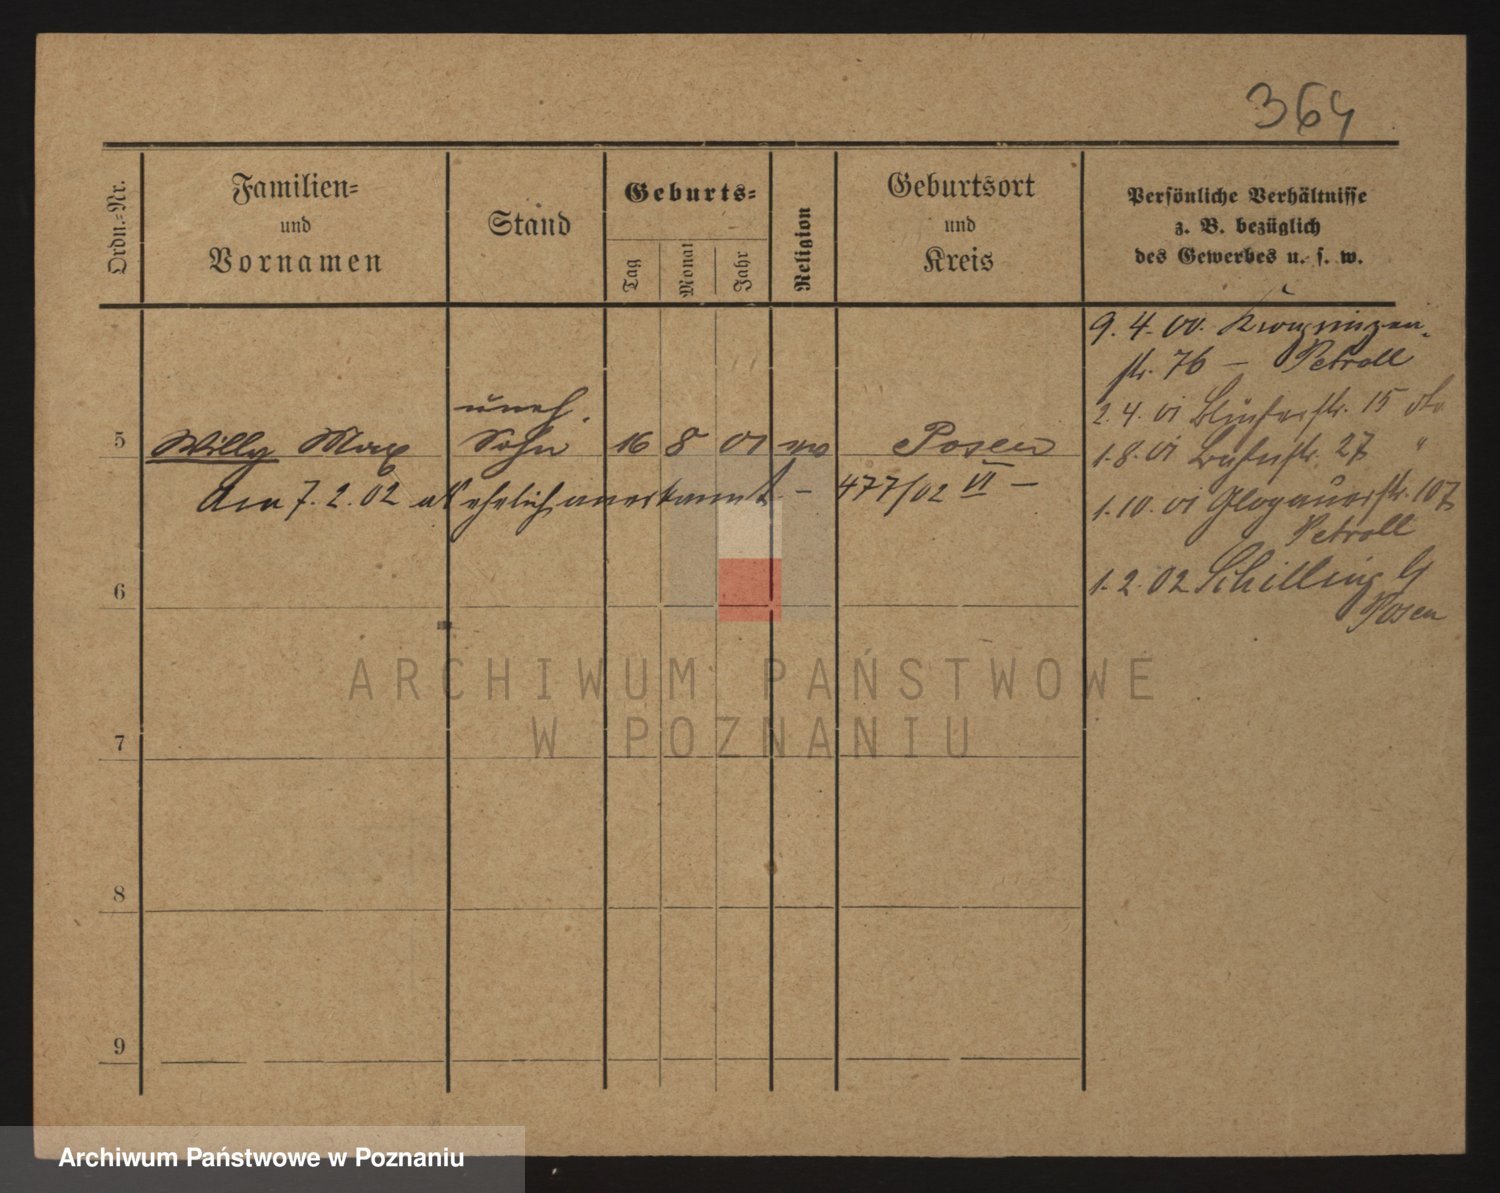 364
Ordn.-Nr.
Familien-
und
Vornamen
Stand
Geburts-
Tag
Monat
Jahr
Religion
Geburtsort
und
Kreis
Persönliche Verhältnisse
z. B. bezüglich
des Gewerbes u. s. w.
9. 4. 00. Kronprinzen-
str. 76 – Petroll
uneh.
2. 4. 01 str. 15 dto
5 Willy Max Sohn 16 8 01 Posen
1. 8. 01 27 "
Am 7. 2. 02 als ehelich anerkannt. – 477/02 VI –
1. 10. 01 Glogauerstr. 107
Petroll
6
1. 2. 02 Schilling
Posen
ARCHIWUM PAŃSTWOWE
W POZNANIU
7
8
9
Archiwum Państwowe w Poznaniu